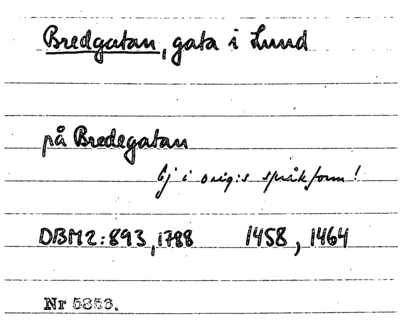 Bredgatan, gata i Lund
på Bredegatan
Ej i orig:s språkform!
DBM2:893, 1788 1458, 1464
Nr 5353.